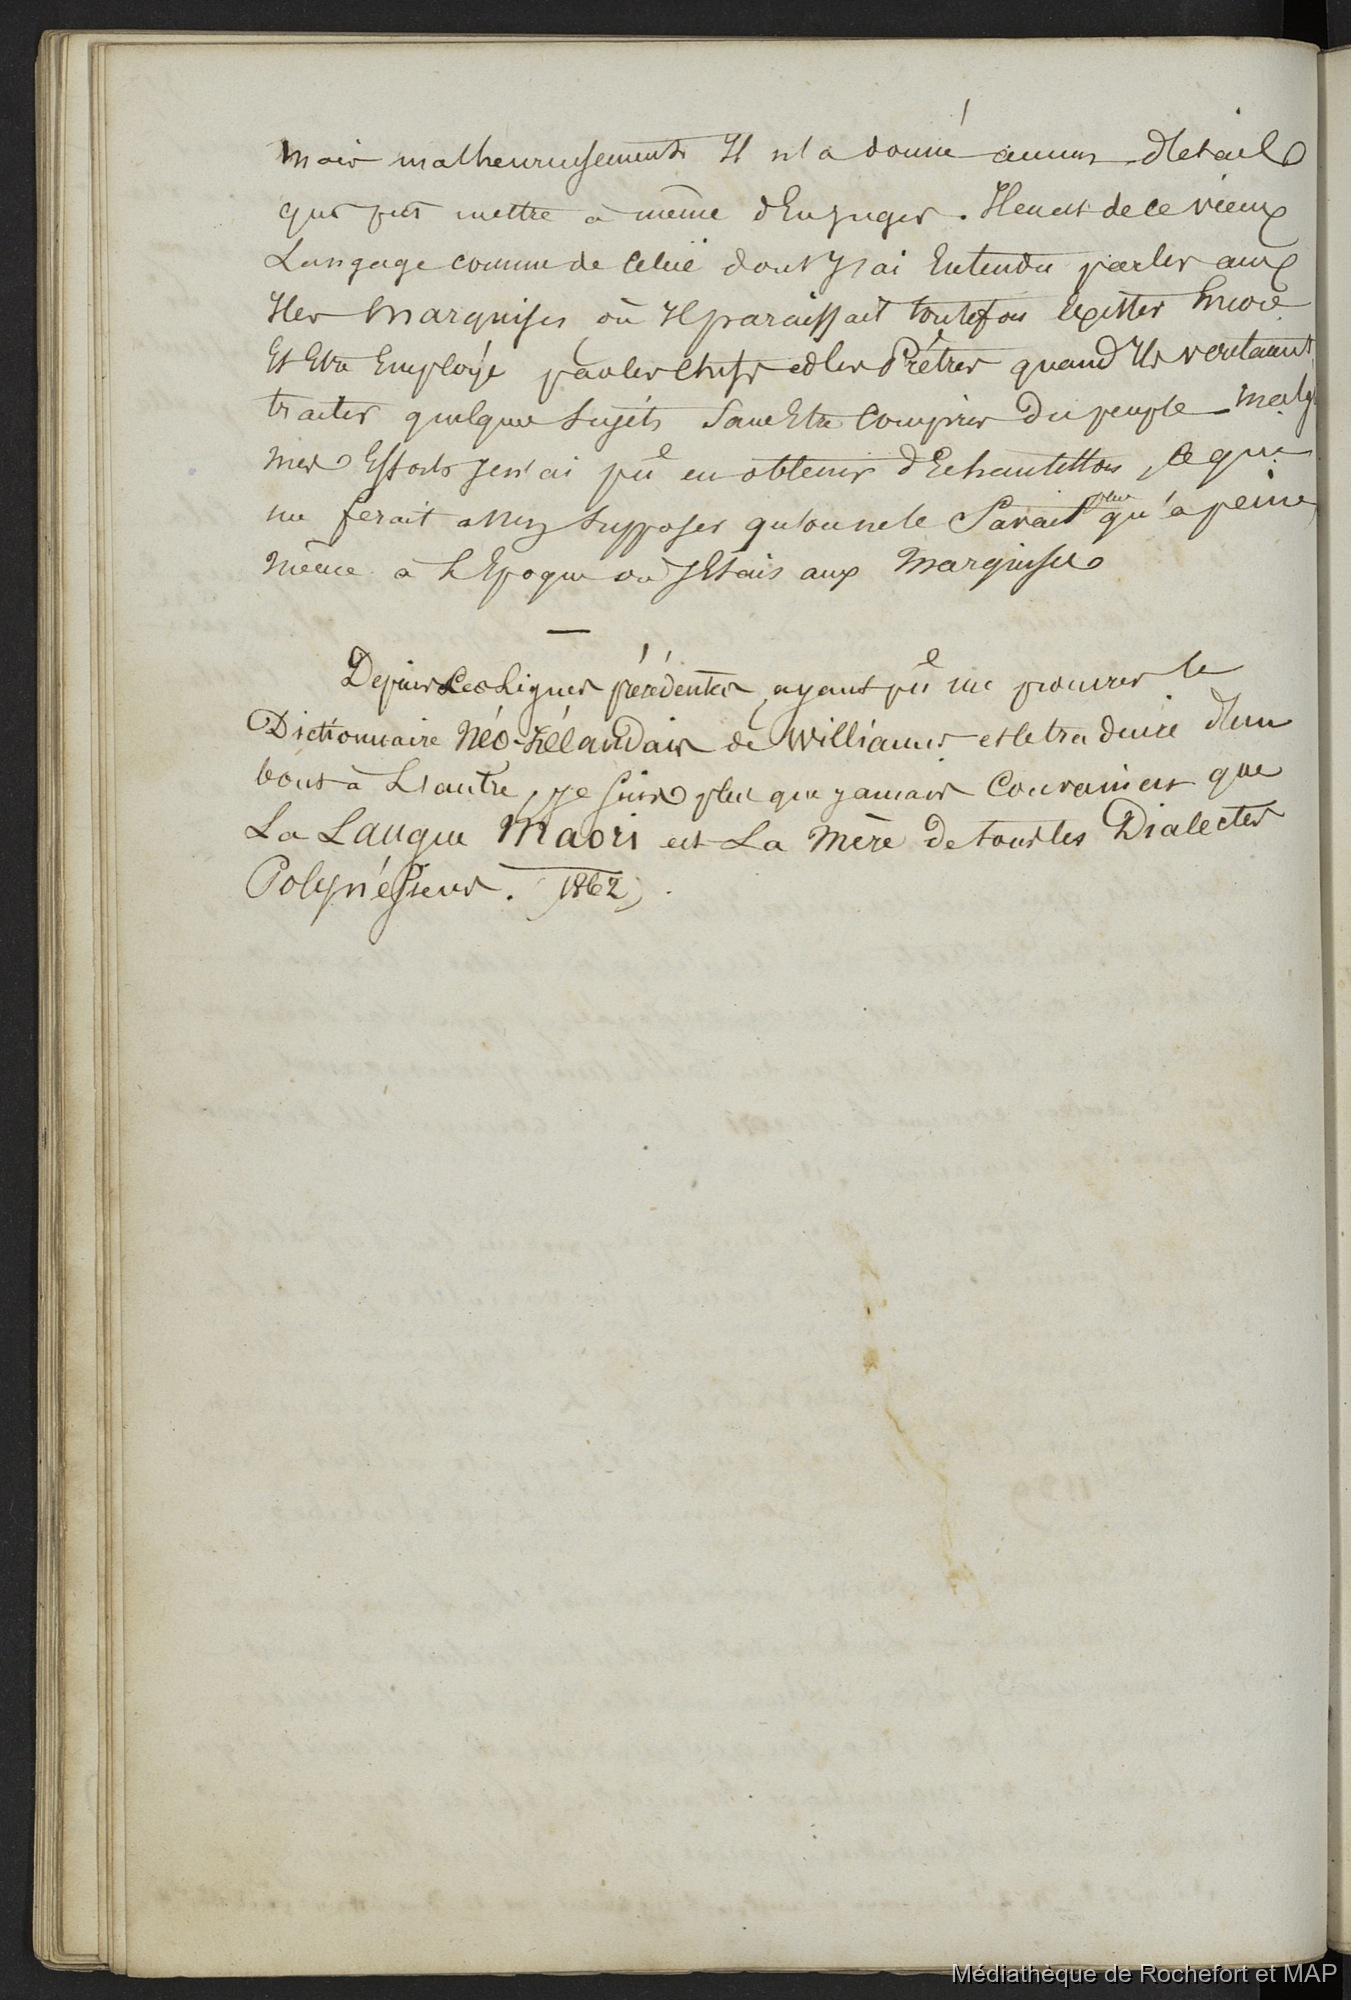 mais malheureusement Il n'a donné aucun détail
qui put mettre à même d'En juger. Il en est de ce vieux
Langage comme de celui dont J'ai Entendu parler aux
Iles Marquises où Il paraissait toutefois Exister Encore
Et Etre Employé par les Chefs et les Prêtres quand Ils voulaient
traiter quelques Sujets Sans Etre Compris du peuple - malg
mes Efforts Je n'ai pû en obtenir d'Echantillon, Ce qui
me ferait assez Supposer qu'on ne le Savait plus qu'à peine
même à L'Epoque où J'Etais aux Marquises
—
Depuis Les Lignes précédentes, ayant pû me procurer le
Dictionnaire Néo-Zélandais de Williams et le traduire d'un
bout à L'autre, je suis plus que jamais Convaincu que
La Langue Maori est La Mère de tous les Dialectes
Polynésiens. (1862)
Médiathèque de Rochefort et MAP